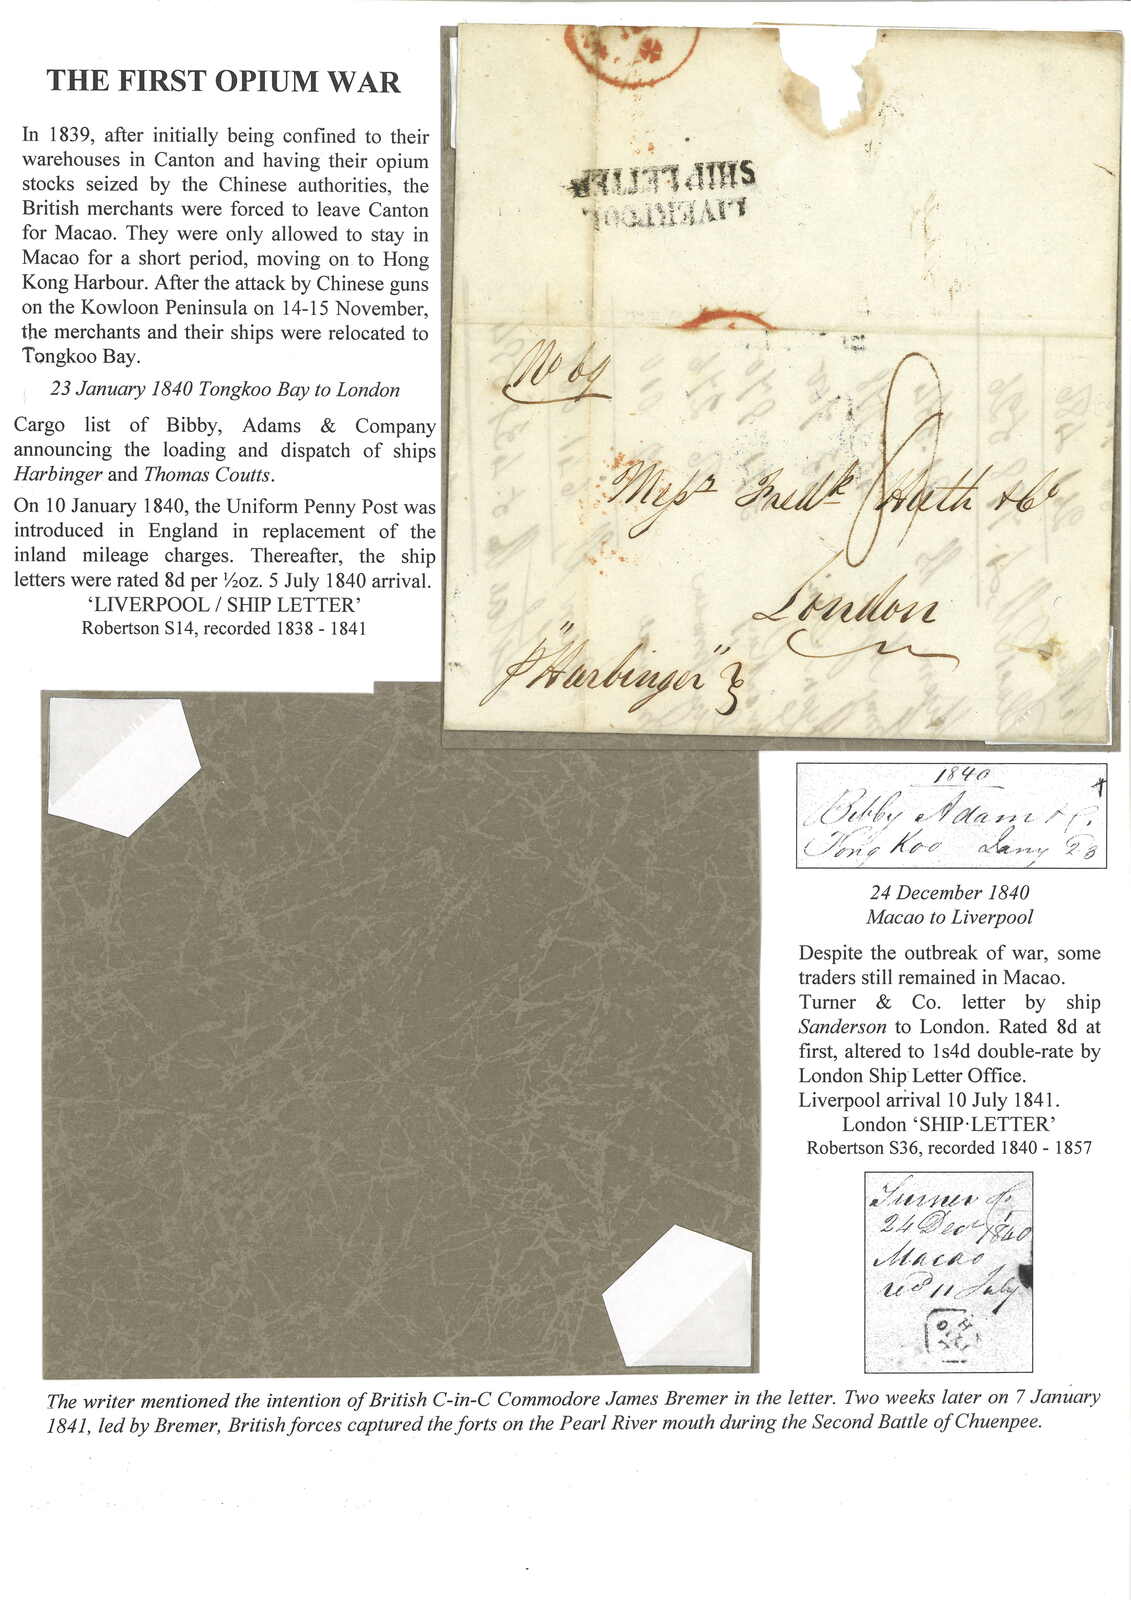 THE FIRST OPIUM WAR
In 1839, after initially being confined to their
warehouses in Canton and having their opium
stocks seized by the Chinese authorities, the
British merchants were forced to leave Canton
for Macao. They were only allowed to stay in
Macao for a short period, moving on to Hong
Kong Harbour. After the attack by Chinese guns
on the Kowloon Peninsula on 14-15 November,
the merchants and their ships were relocated to
Tongkoo Bay.
23 January 1840 Tongkoo Bay to London
Cargo list of Bibby, Adams & Company
announcing the loading and dispatch of ships
Harbinger and Thomas Coutts.
On 10 January 1840, the Uniform Penny Post was
introduced in England in replacement of the
inland mileage charges. Thereafter, the ship
letters were rated 8d per ½oz. 5 July 1840 arrival.
‘LIVERPOOL / SHIP LETTER’
Robertson S14, recorded 1838 - 1841
LIVERPOOL
SHIP LETTER
No 69
8
Messrs Fredk Huth & Co
London
p "Harbinger"
1840
Bibby Adam & Co.
Tong Koo Jany 23
24 December 1840
Macao to Liverpool
Despite the outbreak of war, some
traders still remained in Macao.
Turner & Co. letter by ship
Sanderson to London. Rated 8d at
first, altered to 1s4d double-rate by
London Ship Letter Office.
Liverpool arrival 10 July 1841.
London ‘SHIP·LETTER’
Robertson S36, recorded 1840 - 1857
Turner &
24 Decr 1840
Macao
recd 11 July
The writer mentioned the intention of British C-in-C Commodore James Bremer in the letter. Two weeks later on 7 January
1841, led by Bremer, British forces captured the forts on the Pearl River mouth during the Second Battle of Chuenpee.